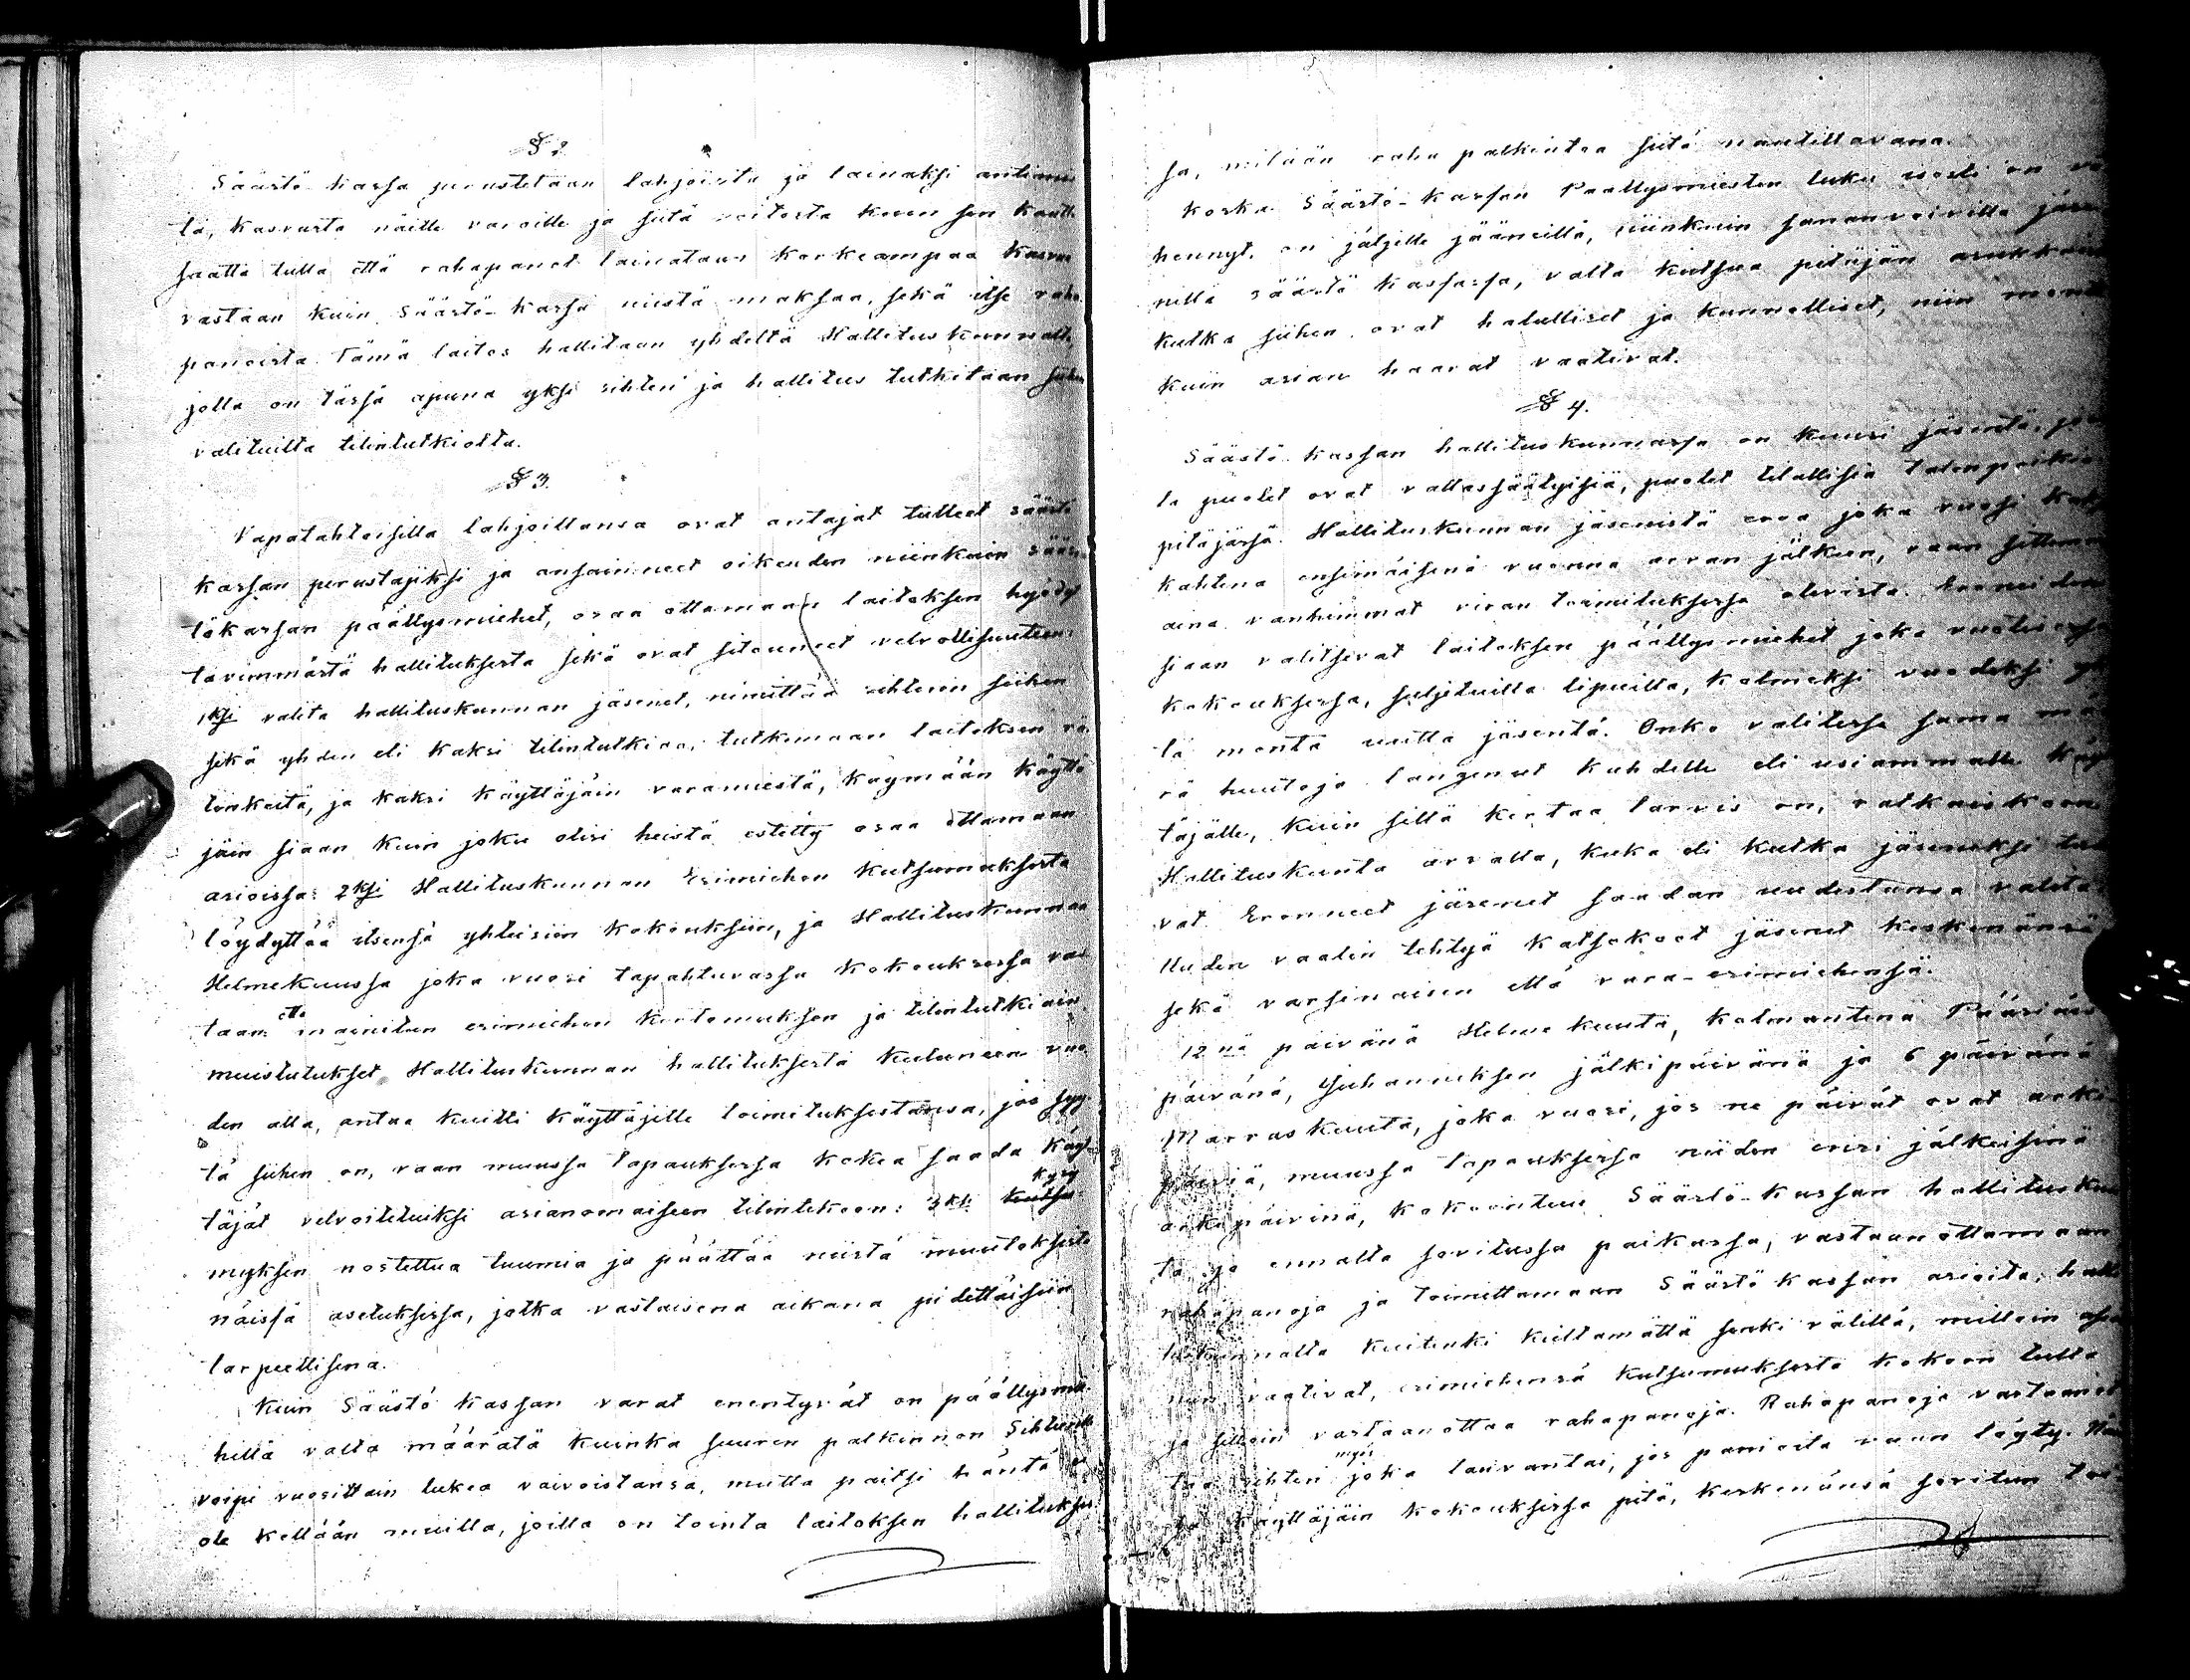 § 2
Säästö-kassa perustetaan lahjoista ja lainaksi
ta, kasvusta näille varoille ja siitä voitosta kuin sen kautt
saatta tulla että rahapanot lainataan korkeampaa kasvu
vastaan kuin Säästö-kassa niistä maksaa, sekä itse raha
panoista. Tämä laitos hallitaan yhdeltä Hallituskunnalta
jolla on tässä apuna yksi sihteri ja hallitus tutkitaan siihen
valituilta tilintutkiolta.
§ 3.
Vapatahtoisilla lahjoillansa ovat antajat tulleet säästö
kassan perustajiksi ja ansainneet oikeuden niinkuin sääs
tökassan päällysmiehet, osaa ottamaan laitoksen hyödyl
tavimmasta hallituksesta sekä ovat sitouneet velvollisuuteen:
1ksi valita hallituskunnan jäsenet, nimittää sihterin siihen
sekä yhden eli kaksi tilintutkiaa, tutkimaan laitoksen ra
tinkeitä, ja kaksi käyttäjäin varamiestä, käymään käyttä
jäin siaan kuin joku olisi heistä estetty osaa ottamaan
asioissa: 2ksi Hallituskunnan Esimiehen kutsumuksesta
löydyttää itsensä yhteisiin kokouksiin, ja Hallituskunnan
Helmekuussa joka vuosi tapahtuvassa kokouksessa vas
taan otta mainitun esimiehen kertomuksen ja tilintutkiain
muistutukset Hallituskunnan hallituksesta kuluneen vuo
den alla, antaa kuitti käyttäjille toimituksestansa, jos syy
tä siihen on, vaan muussa tapauksessa kokea saada käyt
täjät velvoitetuiksi asianomaiseen tilintekoon: 3ksi kutsu kysy
myksen nostettua tuumia ja päättää niistä muutoksista
näissä asetuksissa, jotka vastaisena aikana pidettäisiin
tarpeellisena.
Kuin Säästö kassan varat enentyvät on päällysmie
hillä valta määrätä kuinka suuren palkinnon Sihteril
voipi vuosittain lukea vaivoistansa, mutta paitsi häntä ei
ole kellään muilla, joilla on tointa laitoksen hallitukses
sa, mitään raha palkintoa siitä nautittavana.
Koska Säästö-kassan Päällysmiesten luku isosti on vä
hennyt, on jäljille jääneillä, niinkuin sananvoivilla jäse
nillä säästö kassassa, valta kutsua pitäjän asukkaita
kutka siihen ovat halulliset ja kunnolliset, niin monta
kuin asian haarat vaativat.
§ 4.
Säästö kassan hallituskunnassa on kuusi jäsentä, jois
ta puolet ovat vallassäätyisiä, puolet tilallisia talonpoikia
pitäjässä. Hallituskunnan jäsenistä eroa joka vuosi kaksi
kahtena ensimäisenä vuonna arvan jälkeen, vaan sittemmin
aina vanhimmat viran toimituksessa olevista. Eronneiden
siaan valitsevat laitoksen päällysmiehet joka vuotisessa
kokouksessa, suljetuilla lipuilla, kolmeksi vuodeksi yh
tä monta uutta jäsentä. Onko valitessa sama mää
rä huutoja langennut kahdelle eli usiammalle käyt
täjälle, kuin sillä kertaa tarvis on, ratkaiskoon
Hallituskunta arvalla, kuka eli kutka jäseneksi tule
vat. Eronneet jäsenet saadan uudestansa valita.
Uuden vaalin tehtyä katsokoot jäsenet keskenänsä
sekä varsinaisen että vara-esimiehensä.
12nä päivänä Helmekuuta, kolmantena Pääsiäis
päivänä, Juhannuksen jälkipäivänä ja 6 päivänä
Marraskuuta, joka vuosi, jos ne päivät ovat arki
päiviä, muussa tapauksessa niiden ensi jälkeisinä
arkipäivinä, kokoontuu Säästö-kassan hallituskun
ta ja ennalta sovitussa paikassa, vastaanottamaan
rahapanoja ja toimittamaan Säästökassan asioita; halli
tuskunnalta kuitenki kieltamättä senki välillä, milloin asia
niin vaativat, esimiehensä kutsumuksesta kokoon tulla
ja silloin vastaanottaa rahapanoja. Rahapanoja vastaanot
taa sihteri myös joka lauvantai, jos panioita vaan löyty. Näi
sä käyttäjäin kokouksissa pitä, keskenänsä sovitun